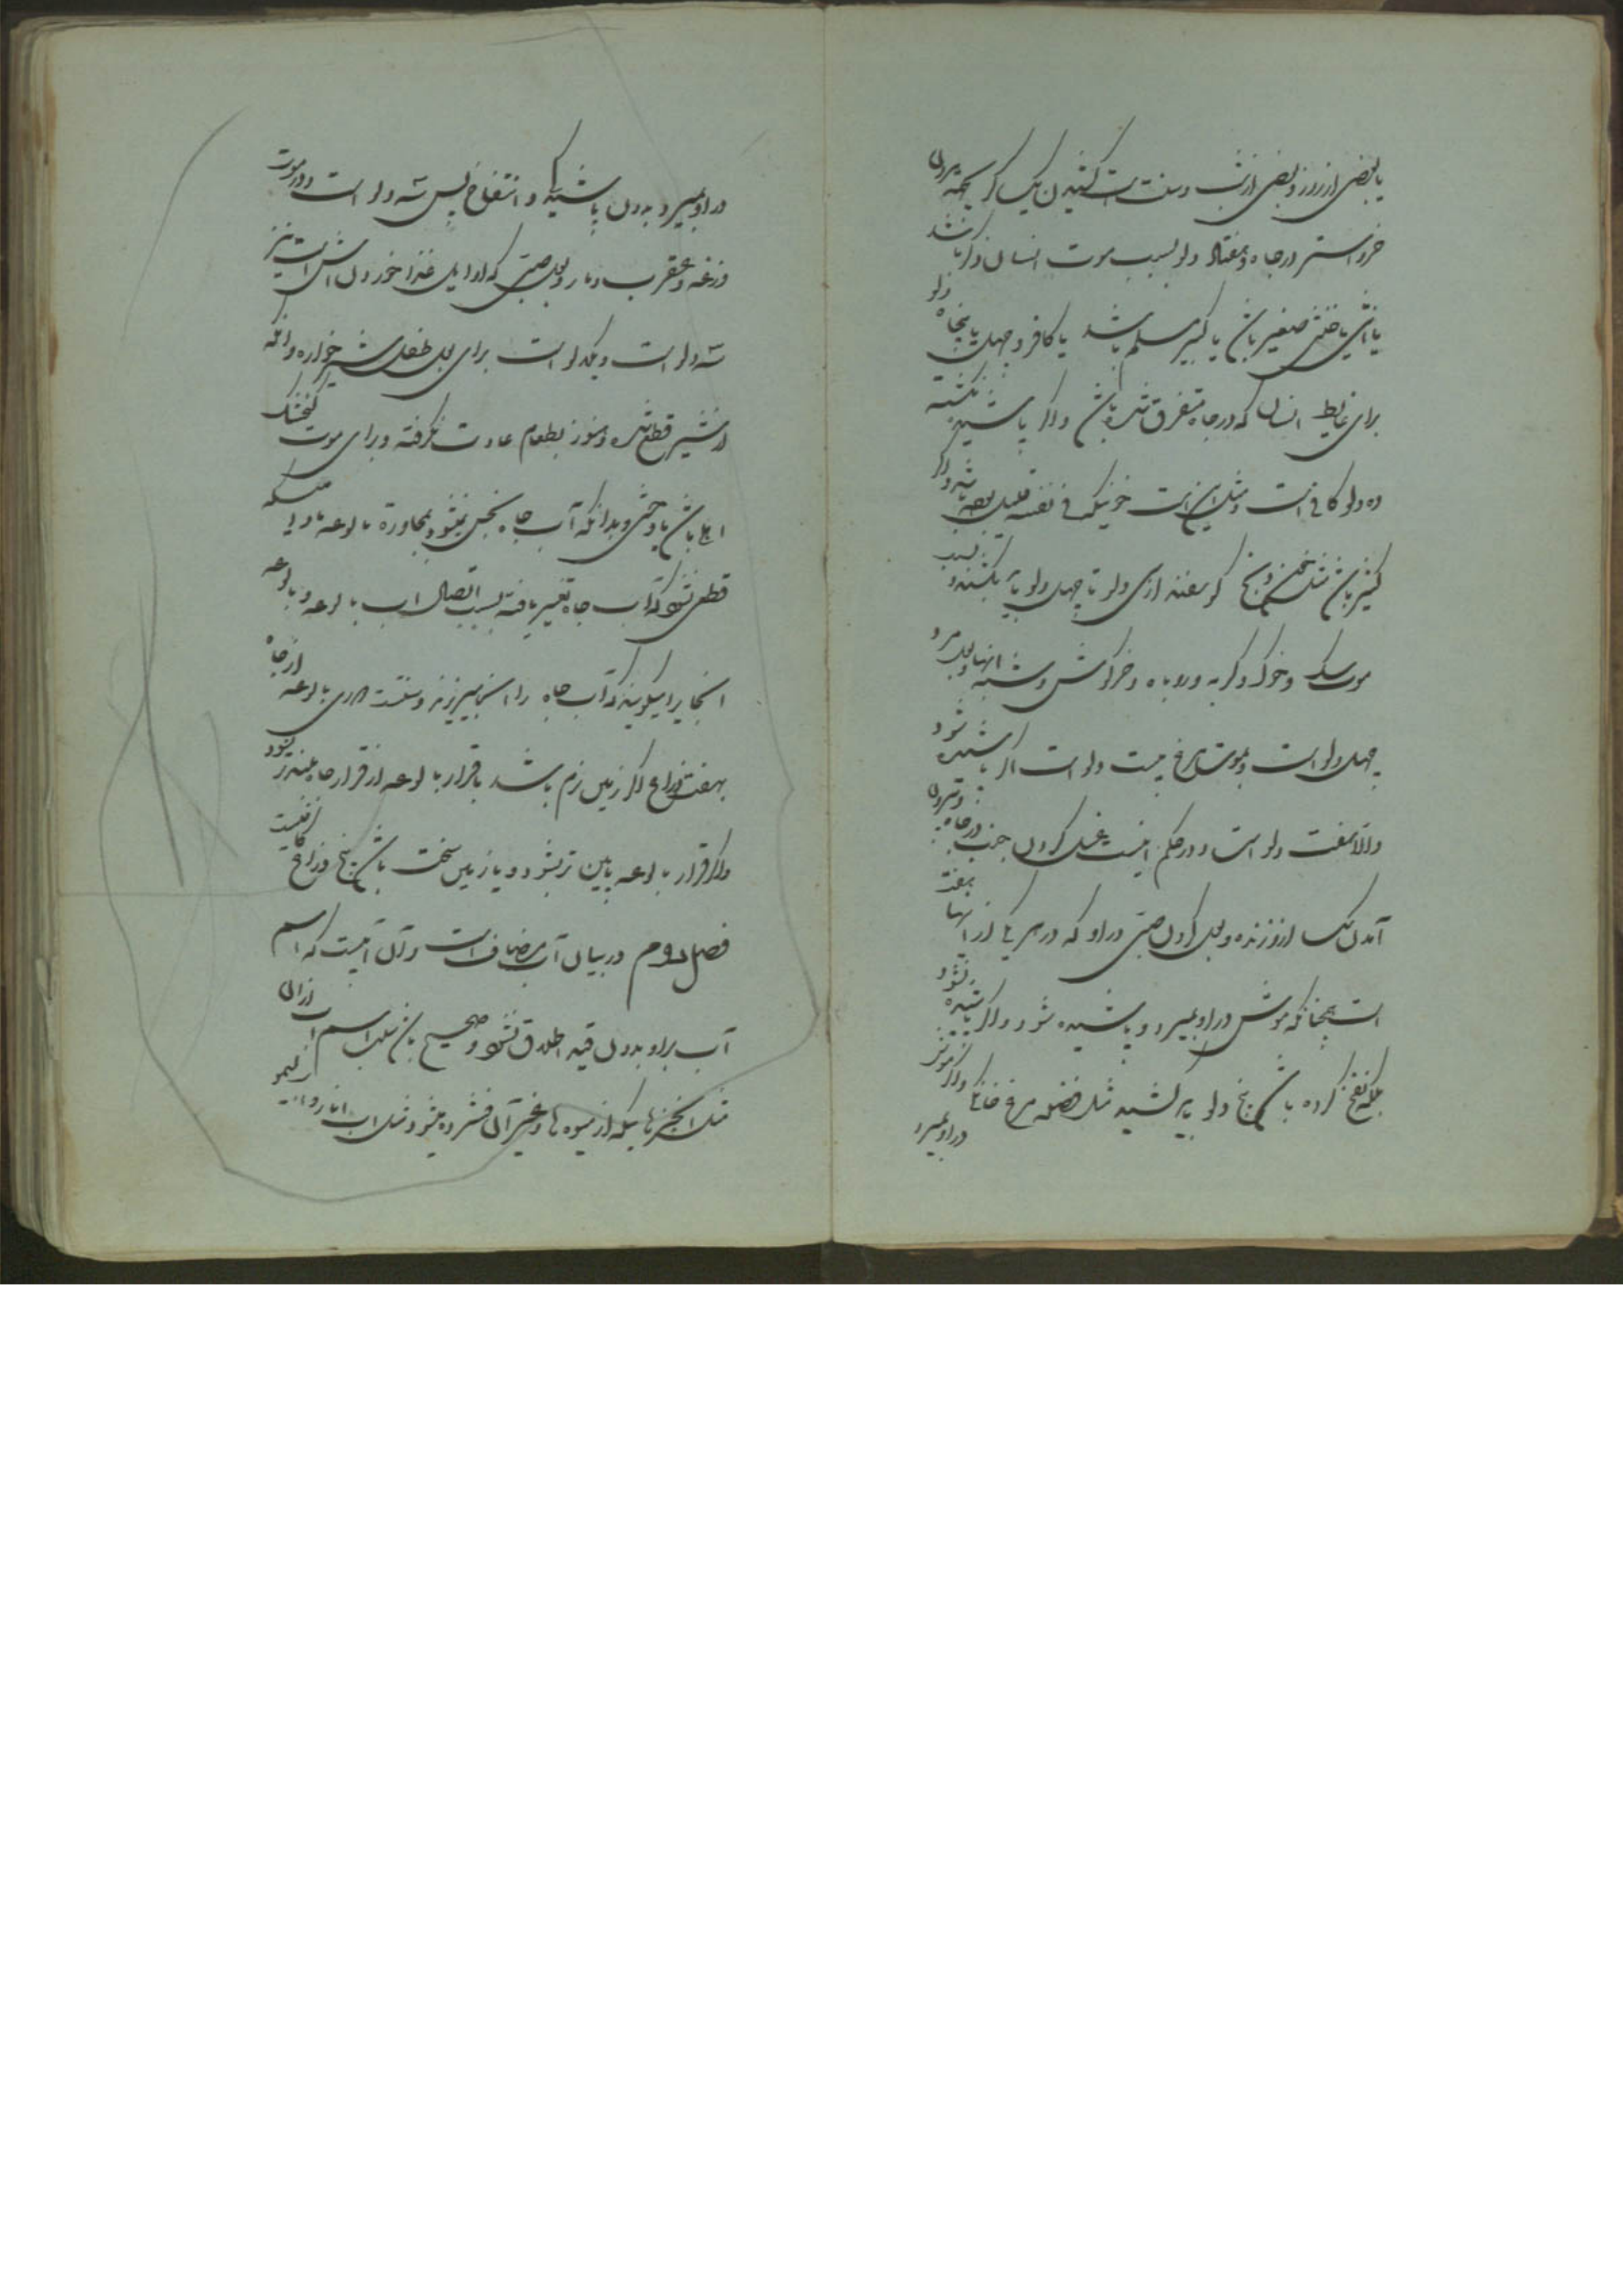 یا بعضی از روز و بعضی از شب و سنت است کشیدن یک کر بجهة مردن
خر و استر در چاه و هفتاد دلو بسبب موت انسان ذکر باشد
یا انثی یا خنثی صغیر باشد یا کبیر مسلم باشد یا کافر و چهل یا پنجاه دلو
برای غایط انسان که در چاه متفرق شده باشد و اگر پاشیده نگشته
ده دلو کافی است و مثل این است خونیکه فی نفسه قلیل باشد و اگر
کثیر باشد مثل خون ذبح گوسفند از سی دلو تا چهل دلو باید بکشند و بسبب
موت سگ و خوک و گربه و روباه و خرگوش و شبه آنها و بول مرد
چهل دلو است و بموت مرغ بیست دلو است اگر پاشیده شود
والا هفت دلو است و در حکم اینست غسل کردن جنب در چاه و بیرون
آمدن سگ از او زنده و بول کردن صبی در او که در هر یک از اینها هفت
است همچنانکه موش در او بمیرد و پاشیده شود و اگر پاشیده نشود
بلکه نفخ کرده باشد پنج دلو باید کشید مثل فضله مرغ خانگی و اگر موش نیز
در او بمیرد
در او بمیرد بدون پاشیدگی و انتفاخ پس سه دلو است و در موت
وزغه و عقرب و مار و بول صبی که اوایل غذا خوردن اش است نیز
سه دلو است و یکدلو است برای بول طفل شیرخواره و آنکه
از شیر قطع شده و هنوز بطعام عادت نگرفته و برای موت گنجشک
اهلی باشد یا وحشی و بدانکه آب چاه نجس نمیشود بمجاورة بالوعه مادامیکه
قطعی نشود که آب چاه تغییر یافته بسبب اتصال آب بالوعه و بالوعه
آنجا را میگویند که آب چاه را آنجا میریزند و سنت است دوری بالوعه از چاه
بهفت ذراع اگر زمین نرم باشد یا قرار بالوعه از قرار چاه بلندتر شود
و اگر قرار بالوعه پایین تر بشود و یا زمین سخت باشد پنج ذراع کافیست
فصل دوم در بیان آب مضاف است و آن آنیست که اسم
آب بر او بدون قید اطلاق نشود و صحیح باشد سلب اسم آب از آن
مثل آنچیزهاییکه از میوه ها و غیر آن فشرده میشود مثل آب انار و آب لیمو